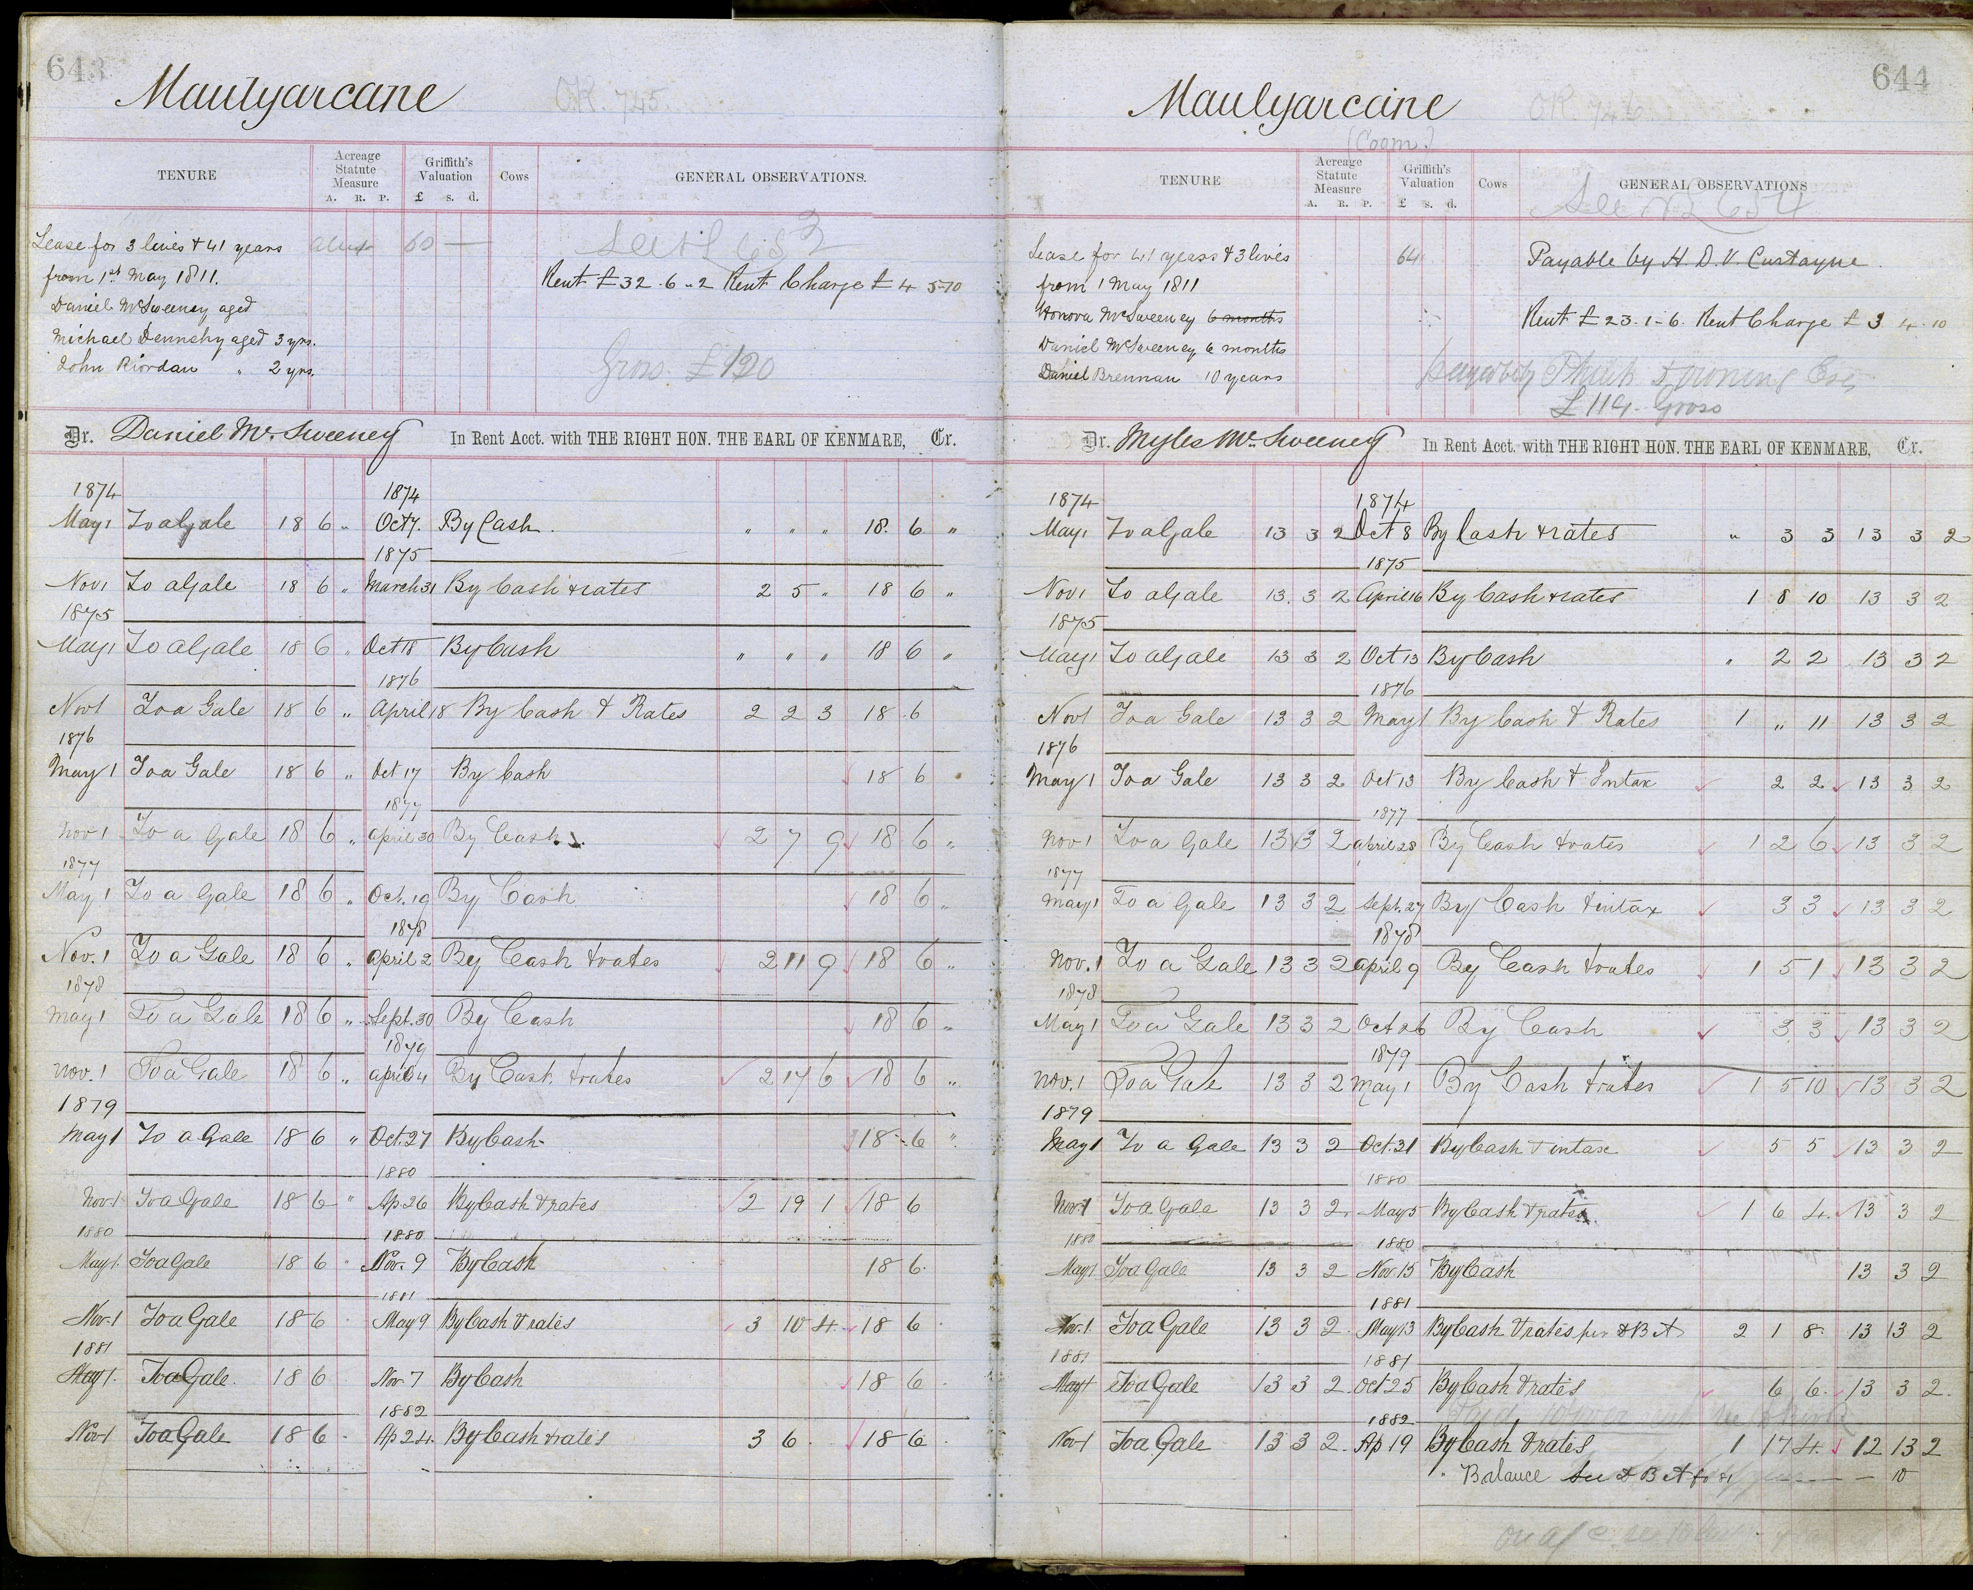 643
Maulyarcane
O.R. 745.
TENURE
Acreage Statute Measure
A. R. P.
Griffith's Valuation
£ s. d.
Cows
GENERAL OBSERVATIONS.
Lease for 3 lives & 41 years 60 —
from 1st May 1811.
Rent £32.6.,2 Rent Charge £4 5-10
Daniel McSweeney aged
Michael Dennehy aged 3 yrs.
John Riordan " 2 yrs.
Gross £120
Dr. Daniel Mc. Sweeney In Rent Acct. with THE RIGHT HON. THE EARL OF KENMARE, Cr.
1874 1874
May 1 To a Gale 18 6 " Oct 7. By Cash. " " " 18. 6. "
1875
Nov 1 To a Gale 18 6 " March 31 By Cash & rates 2 5 " 18 6 "
1875
May 1 To a Gale 18 6 " Oct 18 By Cash " " " 18 6 "
1876
Nov 1 To a Gale 18 6 " April 18 By Cash & Rates 2 2 3 18 . 6
1876
May 1 To a Gale 18 6 " Oct 17 By Cash 18 6 "
1877
Nov 1 To a Gale 18 6 " April 30 By Cash 2 7 9 18 6 "
1877
May 1 To a Gale 18 6 " Oct. 19 By Cash 18 6 "
1878
Nov. 1 To a Gale 18 6 " April 2 By Cash & rates 2 11 9 18 6 "
1878
May 1 To a Gale 18 6 " Sept. 30 By Cash 18 6 "
1879
Nov. 1 To a Gale 18 6 " April 4 By Cash & rates 2 17 6 18 6 "
1879
May 1 To a Gale 18 6 " Oct. 27 By Cash 18 " 6 "
1880
Nov 1 To a Gale 18 6 " Ap 26 By Cash & rates 2 19 1 18 6
1880 1880
May 1. To a Gale 18 6 " Nov. 9 By Cash 18 6.
1881
Nov. 1 To a Gale 18 6 . May 9 By Cash & rates 3 10 4 18 6 .
1881
May 1. To a Gale. 18 6 Nov 7 By Cash 18 6 .
1882
Nov 1 To a Gale 18 6 . Ap 24. By Cash & rates 3 6 . 18 6 .
644
Maulyarcane
(Coom.)
O.R. 746
TENURE
Acreage Statute Measure
A. R. P.
Griffith's Valuation
£ s. d.
Cows
GENERAL OBSERVATIONS
See 654
Lease for 41 years & 3 lives 64 Payable by H. D. V. Curtayne.
from 1 May 1811
Honora McSweeney 6 months Rent £23.1-6. Rent Charge £3 4.10
Daniel McSweeney 6 months
Daniel Brennan 10 years
£114 - Gross
Dr. Myles Mc. Sweeney In Rent Acct. with THE RIGHT HON. THE EARL OF KENMARE, Cr.
1874 1874
May 1 To a Gale 13 3 2 Oct 8 By Cash & rates " 3 3 13 3 2
1875
Nov 1 To a Gale 13. 3 2 April 16 By Cash & rates 1 8 10 13 3 2
1875
May 1 To a Gale 13 3 2 Oct 13 By Cash " 2 2 13 3 2
1876
Nov 1 To a Gale 13 3 2 May 1 By Cash & Rates 1 " 11 13 3 2
1876
May 1 To a Gale 13 3 2 Oct 13 By Cash & Intax 2 2 13 3 2
1877
Nov 1 To a Gale 13 3 2 April 28 By Cash & rates 1 2 6 13 3 2
1877
May 1 To a Gale 13 3 2 Sept. 27 By Cash & intax 3 3 13 3 2
1878
Nov. 1 To a Gale 13 3 2 April 9 By Cash & rates 1 5 1 13 3 2
1878
May 1 To a Gale 13 3 2 Oct 26 By Cash 3 3 13 3 2
1879
Nov. 1 To a Gale 13 3 2 May 1 By Cash & rates 1 5 10 13 3 2
1879
May 1 To a Gale 13 3 2 Oct. 31 By Cash & intax 5 5 13 3 2
1880
Nov 1 To a Gale 13 3 2. May 5 By Cash & rates 1 6 4. 13 3 2
1880 1880
May 1. To a Gale 13 3 2 Nov 15 By Cash 13 3 2
1881
Nov. 1 To a Gale 13 3 2. May 13 By Cash & rates per & B A 2 1 8 13 13 2
1881 1881
May 1 To a Gale 13 3 2. Oct 25 By Cash & rates 6 6. 13 3 2.
1882
Nov 1 To a Gale 13 3 2. Ap 19 By Cash & rates 1 17 4. 12 13 2
" Balance See & B A fo 81 — 10